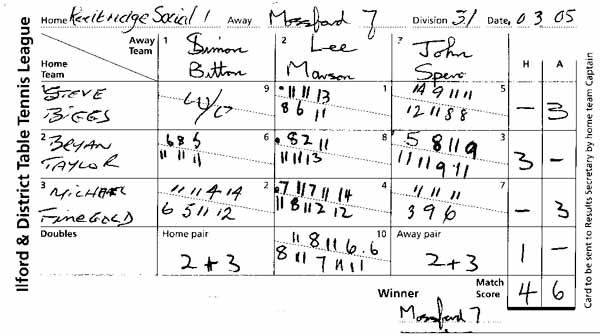 Home Redbridge Social 1 Away Mossford 7 Division 31 Date, 0 3 05
Ilford & District Table Tennis League
Away Team
Home Team
1 Simon Bitton
2 Lee Mawson
7 John Spero
H A
STEVE BIGGS
9 W/O
1 . 11 11 13
8 6 11
5 14 9 11 11
12 11 8 8
– 3
2 BRYAN TAYLOR
6 6 8 5
11 11 11
8 . 8 2 11
11 11 13
3 5 8 11 9
11 11 9 11
3 –
3 MICHAEL FINEGOLD
2 11 11 4 14
6 5 11 12
4 .7 11 7 11 14
11 8 11 2 12
7 11 11 11
3 9 6
– 3
Doubles
Home pair
2 + 3
10 11 8 11 6 . 6
8 11 7 11 11
Away pair
2 + 3
1 –
Winner Mossford 7
Match Score
4 6
Card to be sent to Results Secretary by home team Captain